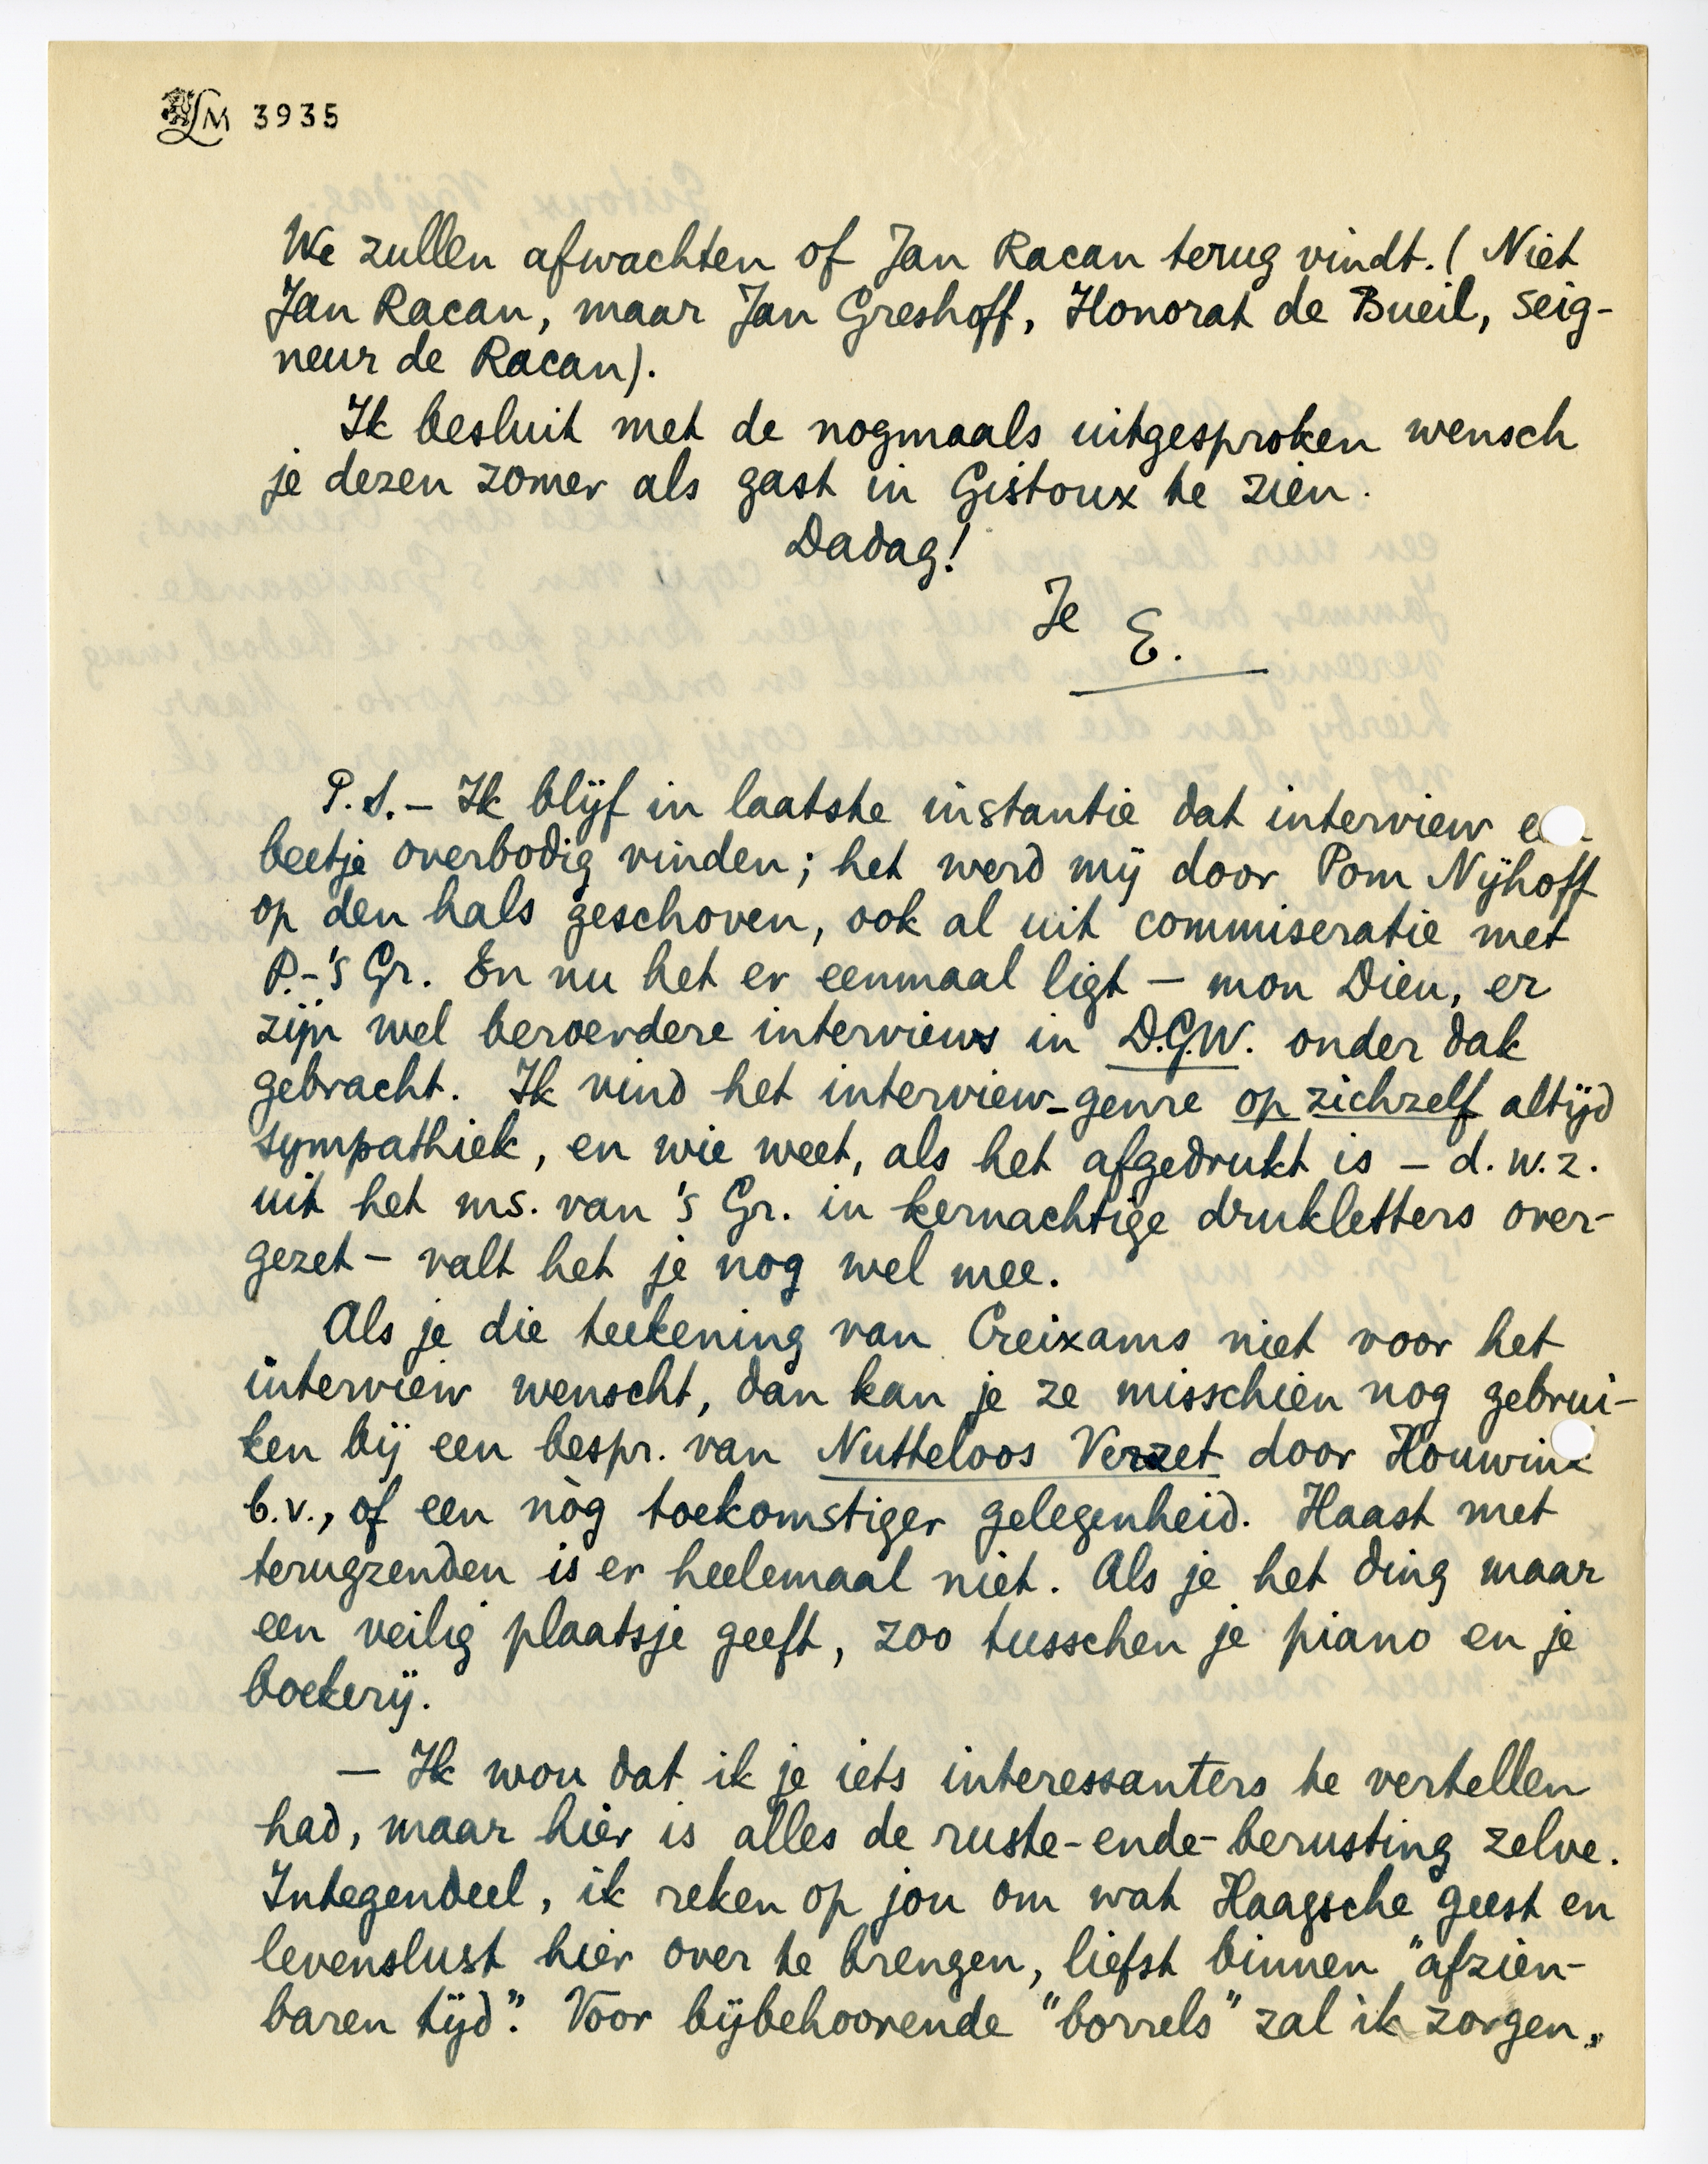 LM 3935
We zullen afwachten of Jan Racan terug vindt. (Niet
Jan Racan, maar Jan Greshoff, Honorat de Bueil, Seig-
neur de Racan).
Ik besluit met de nogmaals uitgesproken wensch
je dezen zomer als gast in Gistoux te zien.
Dadag!
Je
E.
P.S. – Ik blijf in laatste instantie dat interview
beetje overbodig vinden; het werd mij door Pom Nijhoff
op den hals geschoven, ook al uit commiseratie met
P.-'s Gr. En nu het er eenmaal ligt – mon Dieu, er
zijn wel beroerdere interviews in D.G.W. onder dak
gebracht. Ik vind het interview-genre op zichzelf altijd
sympathiek, en wie weet, als het afgedrukt is – d.w.z.
uit het ms. van 's Gr. in kernachtige drukletters over-
gezet – valt het je nog wel mee.
Als je die teekening van Creixams niet voor het
interview wenscht, dan kan je ze misschien nog gebrui-
ken bij een bespr. van Nutteloos Verzet door Houwink
b.v., of een nòg toekomstiger gelegenheid. Haast met
terugzenden is er heelemaal niet. Als je het ding maar
een veilig plaatsje geeft, zoo tusschen je piano en je
boekerij.
– Ik wou dat ik je iets interessanters te vertellen
had, maar hier is alles de ruste-ende-berusting zelve.
Integendeel, ik reken op jou om wat Haagsche geest en
levenslust hier over te brengen, liefst binnen "afzien-
baren tijd". Voor bijbehoorende "borrels" zal ik zorgen.